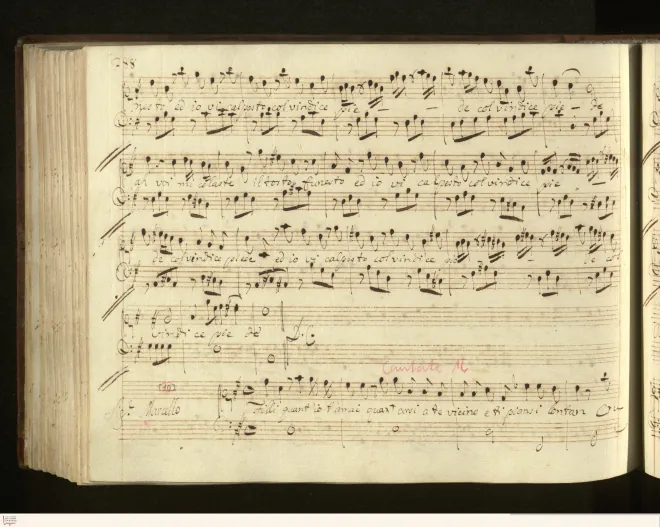 288
nesto ed io vi calpesto col vindice pie - - de col vindice pie - de
ah voi mi celaste il tosto funesto ed io vi calpesto col vindice pie
de col vindice piede ed io vi calpesto col vindice pie - - de col
vindice pie de D.C.
Cantata
Marcello
quant io t'amai quar a te vicino e ti piansi lontan